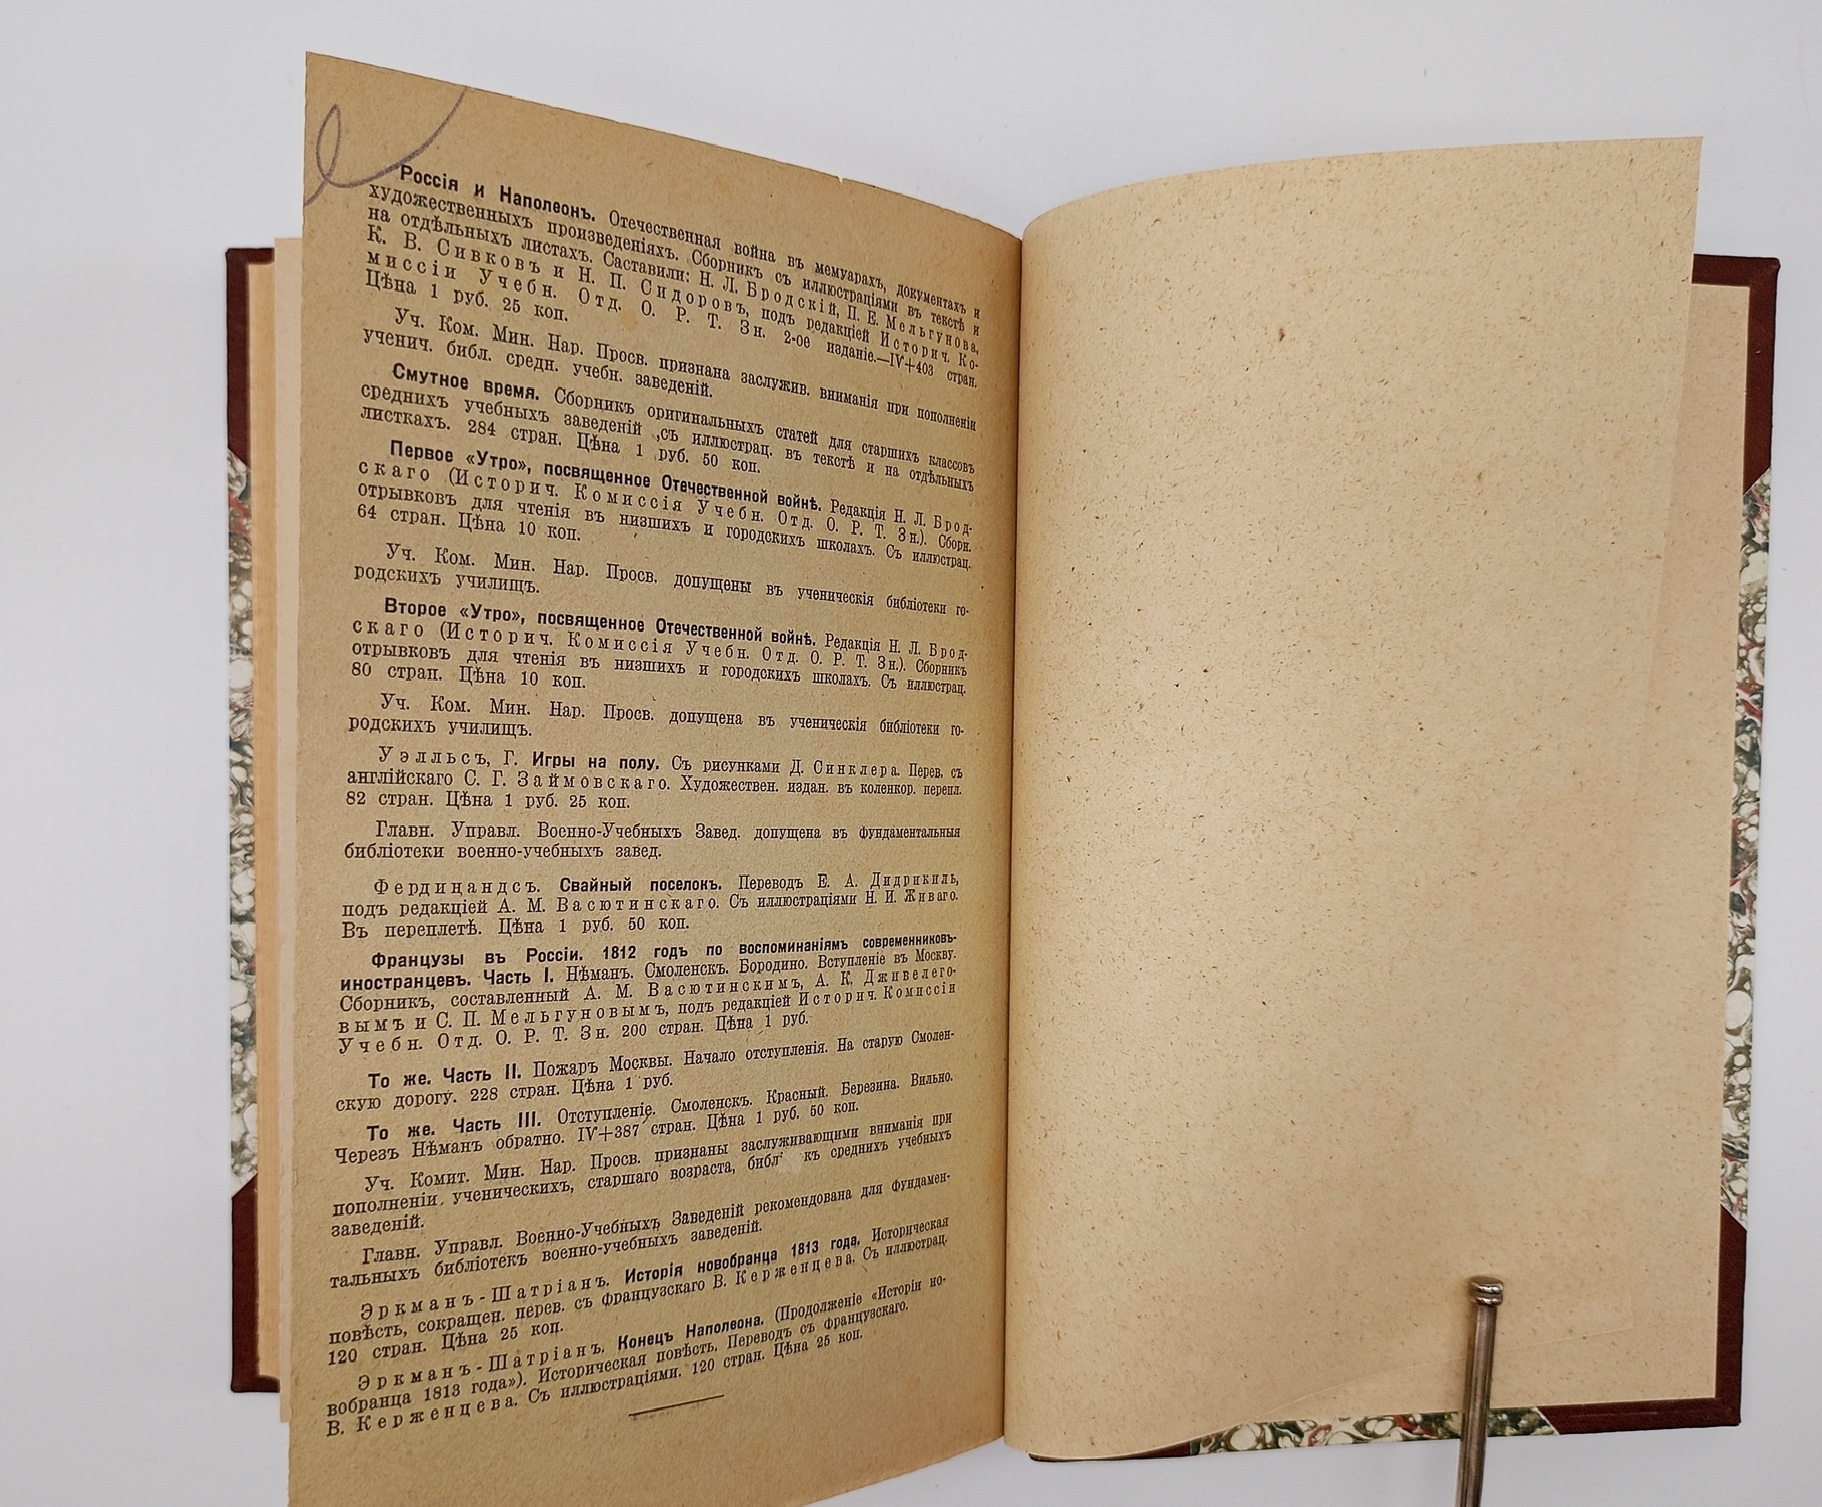 Россія и Наполеонъ. Отечественная война въ мемуарахъ, документахъ и
художественныхъ произведеніяхъ. Сборникъ съ иллюстраціями въ текстѣ и
на отдѣльныхъ листахъ. Составили: Н. Л. Бродскій, П. Е. Мельгунова,
К. В. Сивковъ и Н. П. Сидоровъ, подъ редакціей Историч. Ко-
миссіи Учебн. Отд. О. Р. Т. Зн. 2-ое изданіе.—IV+403 стран.
Цѣна 1 руб. 25 коп.
Уч. Ком. Мин. Нар. Просв. признана заслужив. вниманія при пополненіи
ученич. библ. средн. учебн. заведеній.
Смутное время. Сборникъ оригинальныхъ статей для старшихъ классовъ
среднихъ учебныхъ заведеній съ иллюстрац. въ текстѣ и на отдѣльныхъ
листкахъ. 284 стран. Цѣна 1 руб. 50 коп.
Первое «Утро», посвященное Отечественной войнѣ. Редакція Н. Л. Брод-
скаго (Историч. Комиссія Учебн. Отд. О. Р. Т. Зн.). Сборн.
отрывковъ для чтенія въ низшихъ и городскихъ школахъ. Съ иллюстрац.
64 стран. Цѣна 10 коп.
Уч. Ком. Мин. Нар. Просв. допущены въ ученическія библіотеки го-
родскихъ училищъ.
Второе «Утро», посвященное Отечественной войнѣ. Редакція Н. Л. Брод-
скаго (Историч. Комиссія Учебн. Отд. О. Р. Т. Зн.). Сборникъ
отрывковъ для чтенія въ низшихъ и городскихъ школахъ. Съ иллюстрац.
80 страп. Цѣна 10 коп.
Уч. Ком. Мин. Нар. Просв. допущена въ ученическія библіотеки го-
родскихъ училищъ.
Уэлльсъ, Г. Игры на полу. Съ рисунками Д. Синклера. Перев. съ
англійскаго С. Г. Займовскаго. Художествен. издан. въ коленкор. перепл.
82 стран. Цѣна 1 руб. 25 коп.
Главн. Управл. Военно-Учебныхъ Завед. допущена въ фундаментальныя
библіотеки военно-учебныхъ завед.
Фердинандсъ. Свайный поселокъ. Переводъ Е. А. Дидрикиль,
подъ редакціей А. М. Васютинскаго. Съ иллюстраціями Н. И. Живаго.
Въ переплетѣ. Цѣна 1 руб. 50 коп.
Французы въ Россіи. 1812 годъ по воспоминаніямъ современниковъ-
иностранцевъ. Часть I. Нѣманъ. Смоленскъ. Бородино. Вступленіе въ Москву.
Сборникъ, составленный А. М. Васютинскимъ, А. К. Дживелего-
вымъ и С. П. Мельгуновымъ, подъ редакціей Историч. Комиссіи
Учебн. Отд. О. Р. Т. Зн. 200 стран. Цѣна 1 руб.
То же. Часть II. Пожаръ Москвы. Начало отступленія. На старую Смолен-
скую дорогу. 228 стран. Цѣна 1 руб.
То же. Часть III. Отступленіе. Смоленскъ. Красный. Березина. Вильно.
Черезъ Нѣманъ обратно. IV+387 стран. Цѣна 1 руб. 50 коп.
Уч. Комит. Мин. Нар. Просв. признаны заслуживающими вниманія при
пополненіи ученическихъ, старшаго возраста, библ къ среднихъ учебныхъ
заведеній.
Главн. Управл. Военно-Учебныхъ Заведеній рекомендована для фундамен-
тальныхъ библіотекъ военно-учебныхъ заведеній.
Эркманъ-Шатріанъ. Исторія новобранца 1813 года. Историческая
повѣсть, сокращен. перев. съ французскаго В. Керженцева. Съ иллюстрац.
120 стран. Цѣна 25 коп.
Эркманъ-Шатріанъ. Конецъ Наполеона. (Продолженіе «Исторіи но-
вобранца 1813 года»). Историческая повѣсть. Переводъ съ французскаго.
В. Керженцева. Съ иллюстраціями. 120 стран. Цѣна 25 коп.